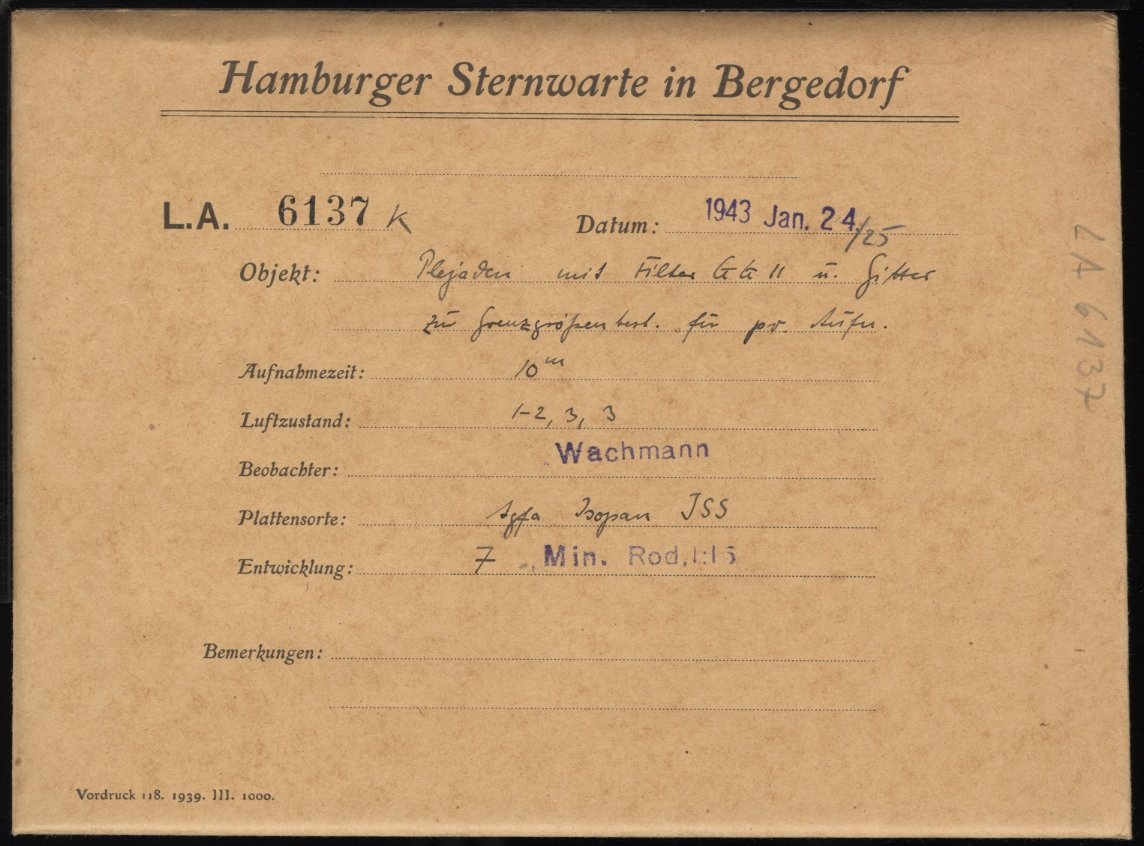 Hamburger Sternwarte in Bergedorf
L.A. 6137 K Datum: 1943 Jan. 24./25
Objekt: Plejaden mit Filter GG 11 u. Gitter
zu Grenzgrößenbest. für pv. Aufn.
Aufnahmezeit: 10m
Luftzustand: 1-2, 3, 3
Beobachter: Wachmann
Plattensorte: Agfa Isopan ISS
Entwicklung: 7 Min. Rod, 1:15
Bemerkungen:
Vordruck 118. 1939. III. 1000.
LA 6137